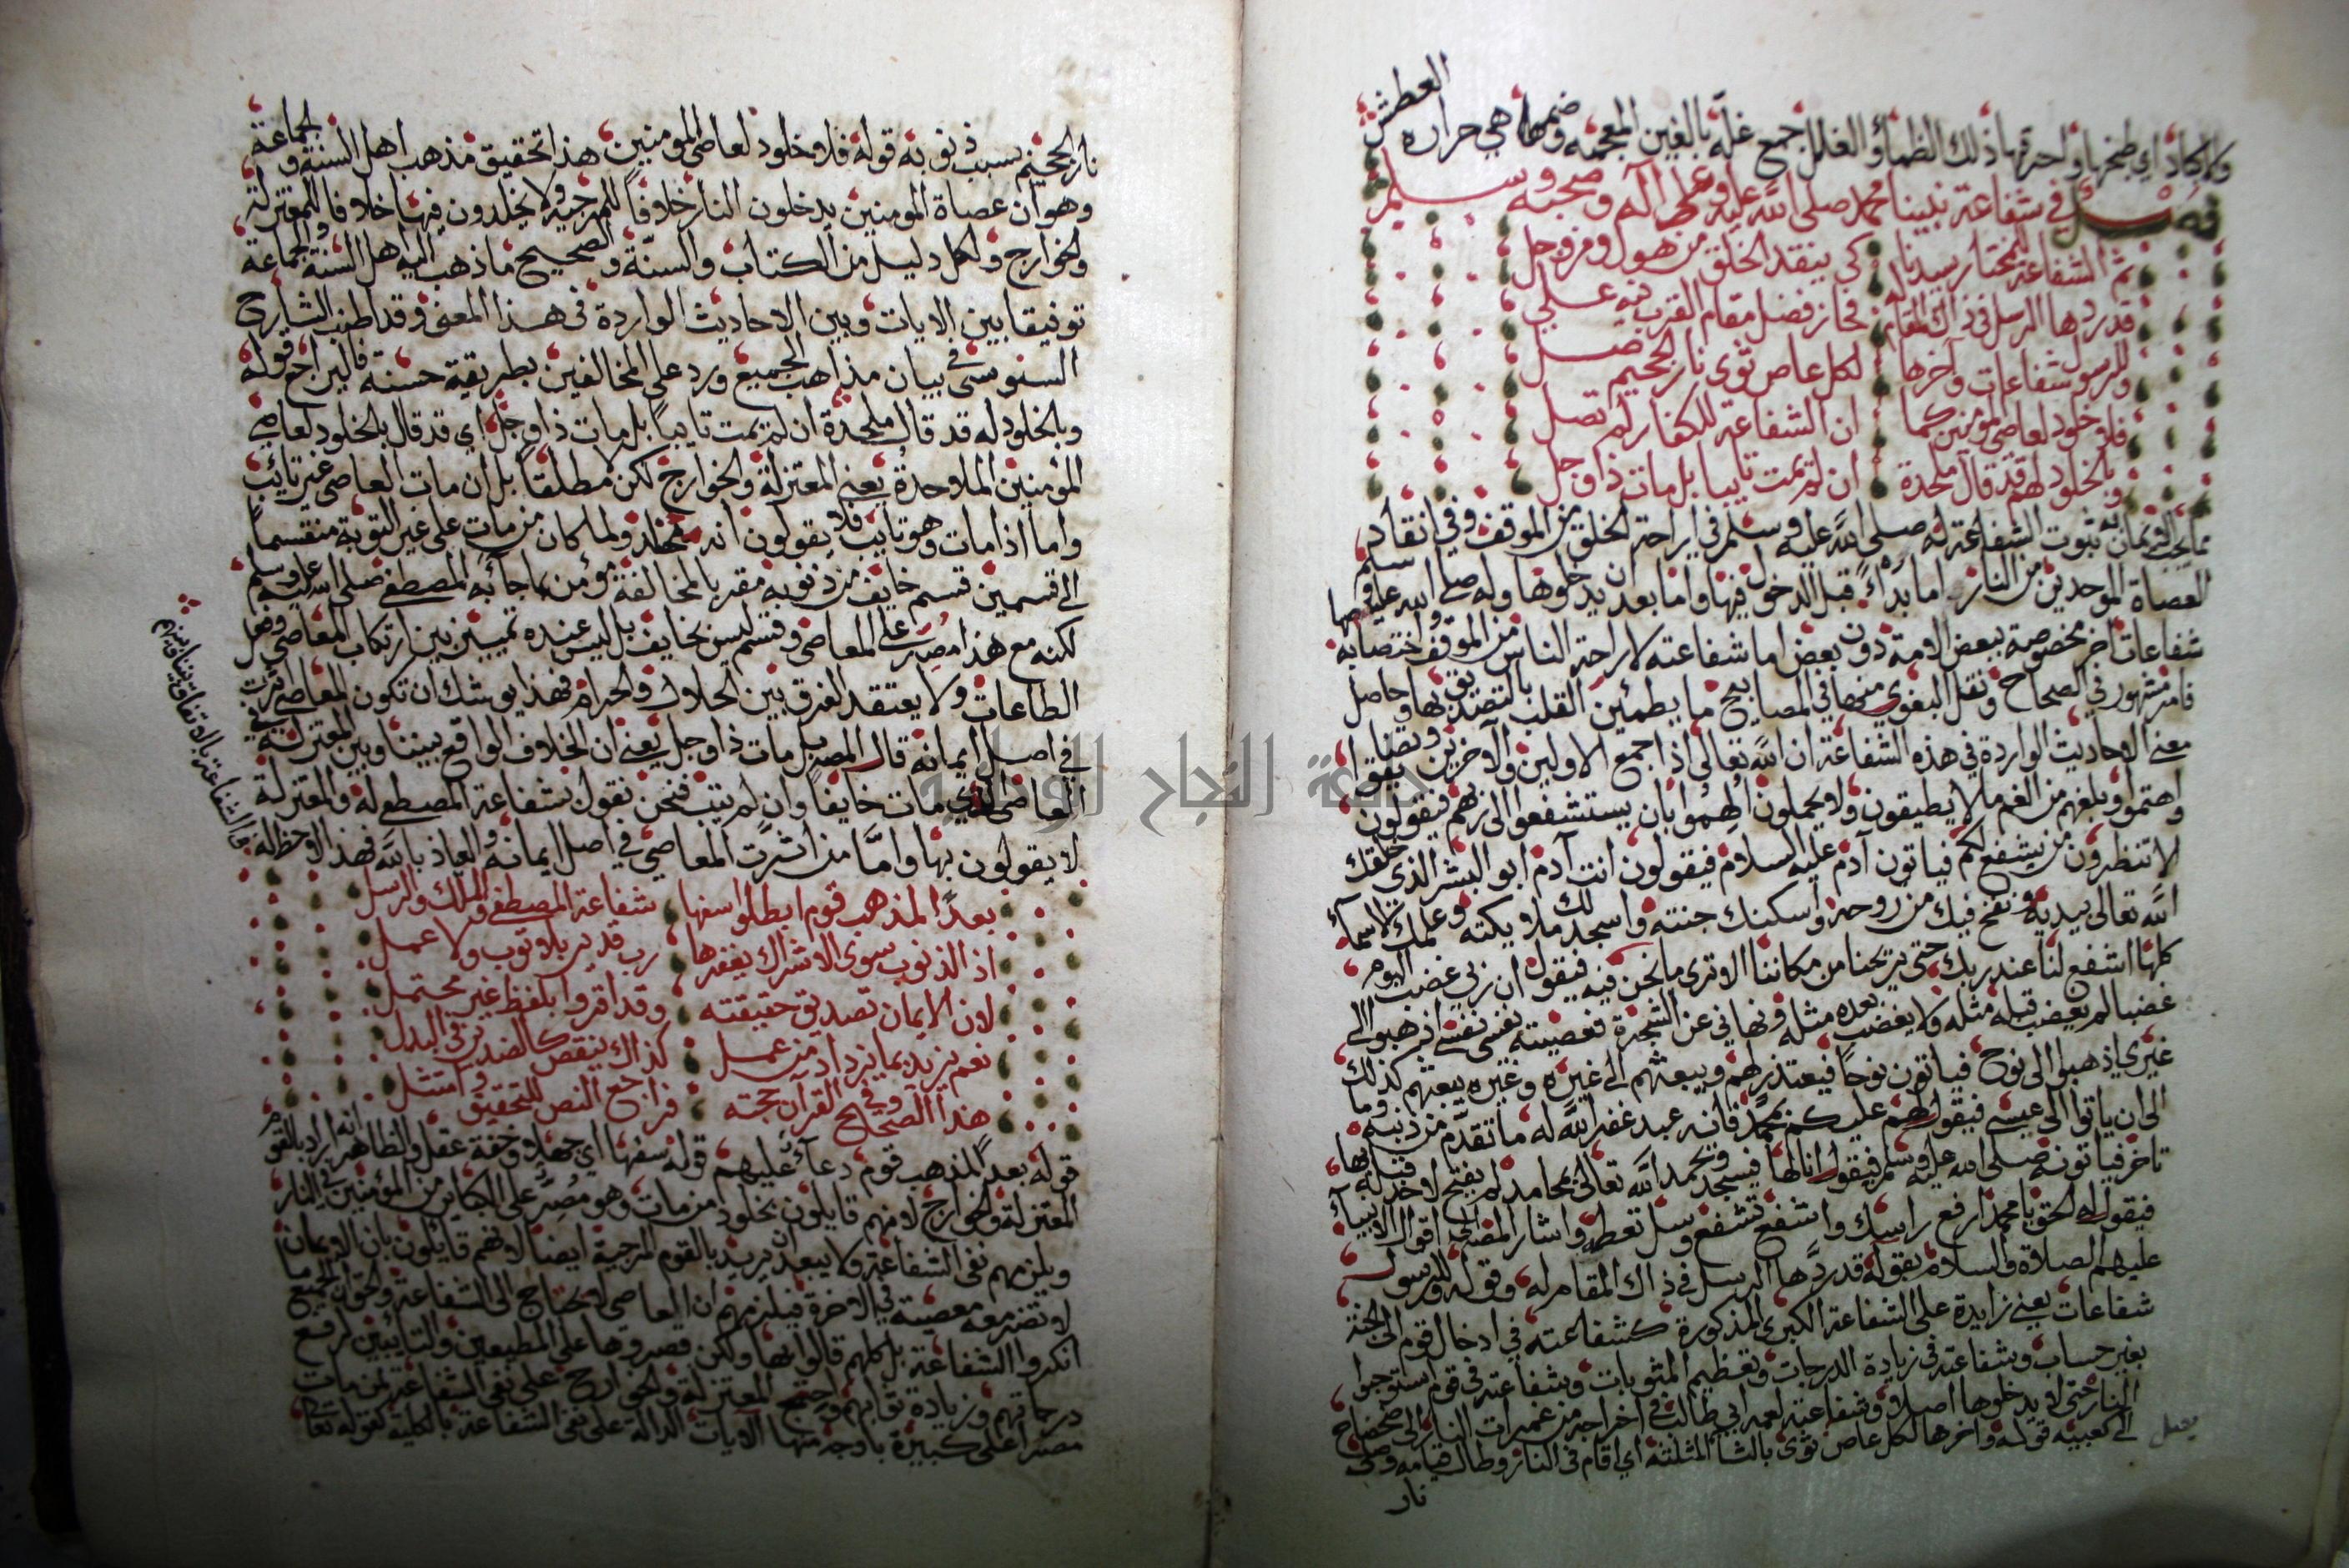 العطش
وكلما كادا اي طبخها واحرقها ذلك الظمأ والغلل جمع غلّة بالغين المعجمة وضمها هي حرارة
فصل في شفاعة نبينا محمد صلى الله عليه وعلى آله وصحبه وسلم
ثم الشفاعة للمختار سيدنا كي ينقذ الخلق من هول ومن وجل
قد ردها الرسل في ذاك المقام له فحاز فضل مقام القرب فيه علي
وللرسول شفاعات وآخرها لكل عاص ثوى نار الجحيم صل
فلا خلود لعاصي المؤمنين كما ان الشفاعة للكفار لم تصل
وبالخلود لهم قد قال ملحدة ان لم يمت تايبا بل مات ذا وجل
مما يجب الايمان به ثبوت الشفاعة له صلى الله عليه وسلم في اراحة الخلق من الموقف وفي انقاذهم
العصاة الموحدين من النار اما بدأ قبل الدخول فيها واما بعد ان يدخلوها وله صلى الله عليه وسلم
شفاعات اخر مخصوصة ببعض الامة دون بعض اما شفاعته لاراحة الناس من الموقف واختصاصه بها
فامر مشهور في الصحاح ونقل البغوي منها في المصابيح ما يطمئن القلب بالتصديق بها وحاصل
معنى الاحاديث الواردة في هذه الشفاعة ان الله تعالى اذا جمع الاولين والآخرين وتضايقوا
واهتموا وبلغهم من الغم ما لا يطيقون ولا يحملون الهموا بان يستشفعوا الى ربهم فيقولون
لا تنظرون من يشفع لكم فياتون آدم عليه السلام فيقولون انت آدم ابو البشر الذي خلقك
الله تعالى بيديه ونفخ فيك من روحه واسكنك جنته واسجد لك ملايكته وعلمك الاسمآ
كلها اشفع لنا عند ربك حتى يريحنا من مكاننا الا ترى ما نحن فيه فيقول ان ربي غضب اليوم
غضبا لم يغضب قبله مثله ولا يغضب بعده مثله ونهاني عن الشجرة فعصيته نفسي نفسي اذهبوا الى
غيري اذهبوا الى نوح فياتون نوحاً فيعتذر لهم ويبعثهم الى غيره وغيره يبعثهم كذلك
الى ان ياتوا الى عيسى فيقول لهم عليكم بمحمد فانه عبد غفر الله له ما تقدم من ذنبه وما
تاخر فياتونه صلى الله عليه وسلم فيقول انا لها فيسجد ويحمد الله تعالى بمحامد لم يفتح لاحد قبله بها
فيقول له الحق يا محمد ارفع راسك واشفع تشفع وسل تعطه واشار المص الى اقوال الانبيآ
عليهم الصلاة والسلام بقوله قد ردّها الرسل في ذاك المقام له وقوله وللرسول
شفاعات يعني زايدة على الشفاعة الكبرى المذكورة كشفاعته في ادخال قوم الى الجنة
بغير حساب وشفاعته في زيادة الدرجات وتعظيم المثوبات وشفاعته في قوم استوجبوا
النار حتى لا يدخلوها اصلا وشفاعته لعمه ابي طالب في اخراجه من غمرات النار الى ضحضاح
الى كعبيه قوله وآخرها لكل عاص ثوى بالثا المثلثة اي اقام في النار وطال قيامه وصلى
نار
نار الجحيم بسبب ذنوبه قوله فلا خلود لعاصي المومنين هذا تحقيق مذهب اهل السنة والجماعة
وهو ان عصاة المومنين يدخلون النار خلافاً للمرجية ولا يخلدون فيها خلافا للمعتزلة
والخوارج ولكل دليل من الكتاب والسنّة والصحيح ما ذهب اليه اهل السنة والجماعة
توفيقا بين الايات وبين الاحاديث الواردة في هذا المعنى وقد اطنب الشارح
السنوسي في بيان مذاهب الجميع ورد على المخالفين بطريقة حسنة فاليراجع قوله
وبالخلود له قد قال ملحدة ان لم يمت تايباً بل مات ذا وجل اي قد قال بالخلود لعاصي
المؤمنين الملاحدة يعني المعتزلة والخوارج لكن لا مطلقاً بل ان مات العاصي غير تائب
واما اذا مات وهو تايب فلا يقولون انه مخلد ولما كان من مات على غير التوبة منقسماً
الى قسمين قسم خايف من ذنوبه مقر بالمخالفة مؤمن بما جآ به المصطفى صلى الله عليه وسلم
لكنه مع هذا مصرّ على المعاصي وقسم ليس بخايف بل ليس عنده تمييز بين ارتكاب المعاصي وفعل
الطاعات ولا يعتقد الفرق بين الحلال والحرام فهذا يوشك ان تكون المعاصي اثرت
في اصل ايمانه قال المص بل مات ذا وجل يعني ان الخلاف الواقع بيننا وبين المعتزلة في
العاصي الذي مات خايفاً وان لم يتب فنحن نقول بشفاعة المصطفى له والمعتزلة
لا يقولون بها وامّا من اثرت المعاصي في اصل ايمانه والعياذ بالله فهذا لا حظ له
والشفاعة بالاتفاق بيننا وبينهم
بعداً لمذهب قوم ابطلوا سفها شفاعة المصطفى والملك والرسل
اذ الذنوب سوى الاشراك يغفرها رب قدير بلا توب ولا عمل
لان الايمان تصديق حقيقته وقد اقروا بلفظ غير محتمل
نعم يزيد بما يزداد من عمل كذاك ينقص كالضدين في البدل
هذا الصحيح وفي القرآن حجته فراجع النص للتحقيق وامتثل
قوله بعداً لمذهب قوم دعآء عليهم قوله سفها اي جهلا وخفة عقل والظاهر انه اراد بالقوم
المعتزلة والخوارج لانهم قايلون بخلود من مات وهو مُصِرّ على الكباير من المؤمنين في النار
ويلزمهم نفي الشفاعة ولا يبعد ان يريد بالقوم المرجية ايضا لانهم قايلون بان الايمان
لا تضر معه معصية في الاخرة فيلزمهم ان العاصي لا يحتاج الى الشفاعة والحق ان الجميع ما
انكروا الشفاعة بل كلهم قالوا بها ولكن قصروها على المطيعين والتائبين لرفع
درجاتهم وزيادة ثوابهم واحتج المعتزلة والخوارج على نفي الشفاعة لمن مات
مصرا على كبيرة باوجه منها الايات الدالة على نفي الشفاعة بالكلية لقوله تعا